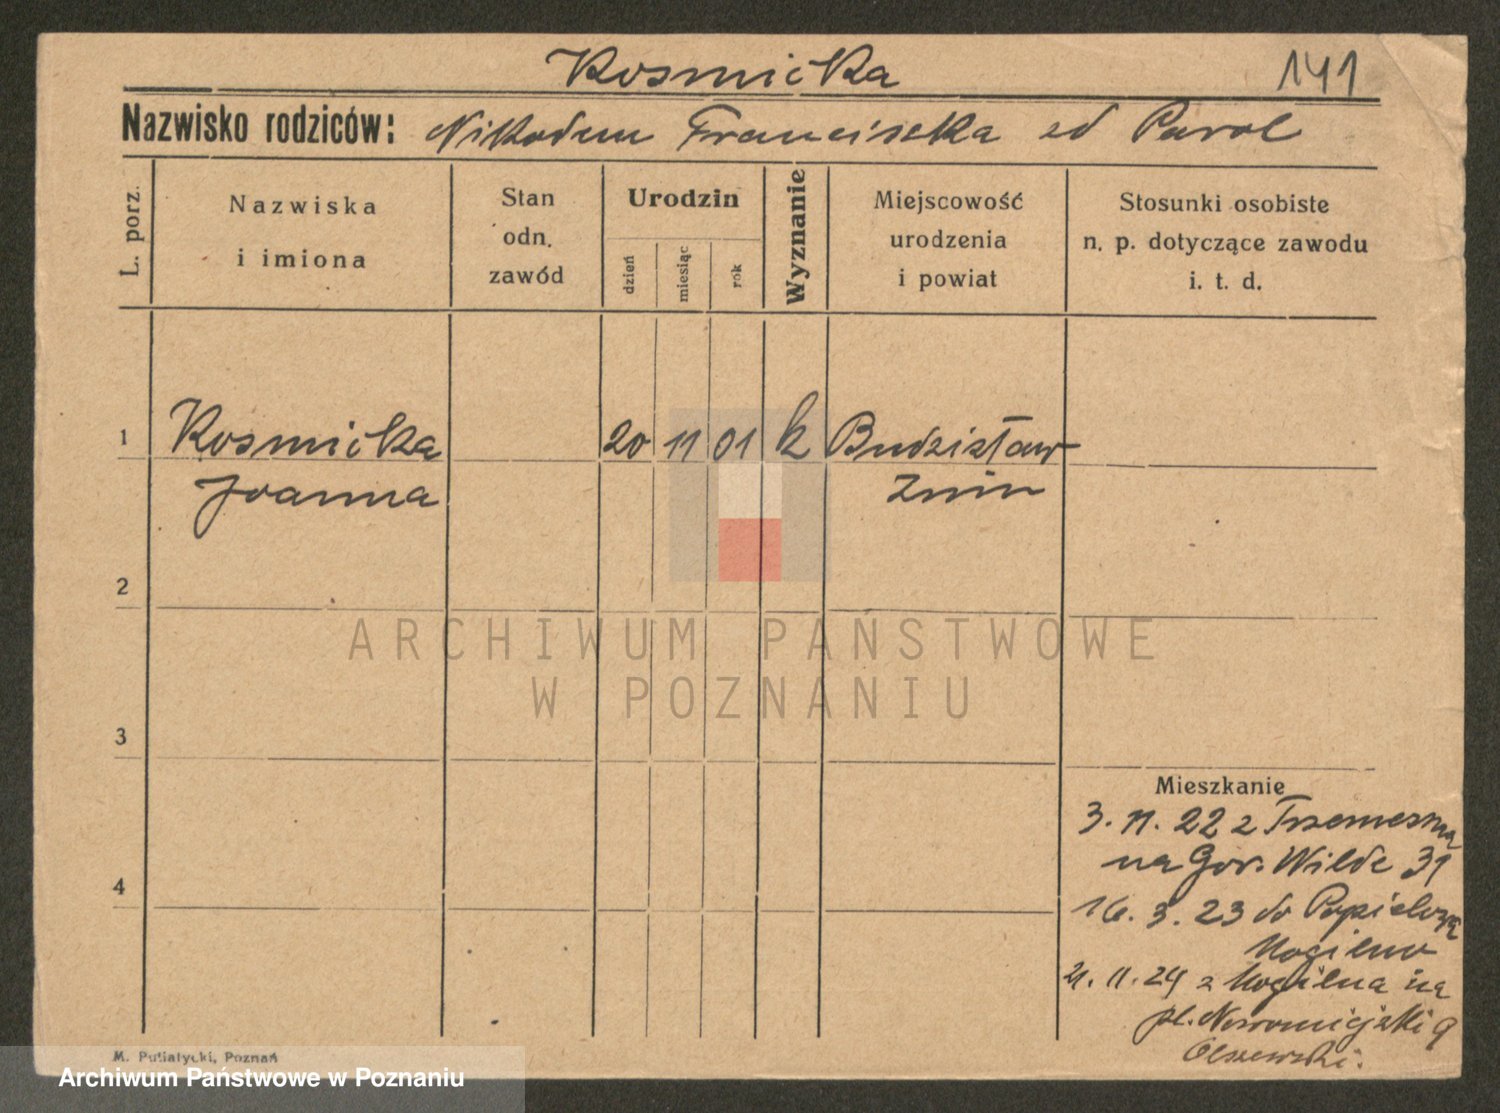 Kosmicka 141
Nazwisko rodziców: Nikodem Franciszka zd Parol
L. porz.
Nazwiska
i imiona
Stan
odn.
zawód
Urodzin
dzień
miesiąc
rok
Wyznanie
Miejscowość
urodzenia
i powiat
Stosunki osobiste
n. p. dotyczące zawodu
i. t. d.
1 Kosmicka 20 11 01 k Budzisław
Joanna Żnin
2
ARCHIWUM PAŃSTWOWE
W POZNANIU
3
Mieszkanie
3. 11. 22 z Trzemeszna
na Gór. Wilde 31
4
16. 3. 23 do
Mogilno
21. 11. 24 z Mogilna na
pl. Nowomiejski 9
Olszewski.
M. Putiatycki, Poznań
Archiwum Państwowe w Poznaniu